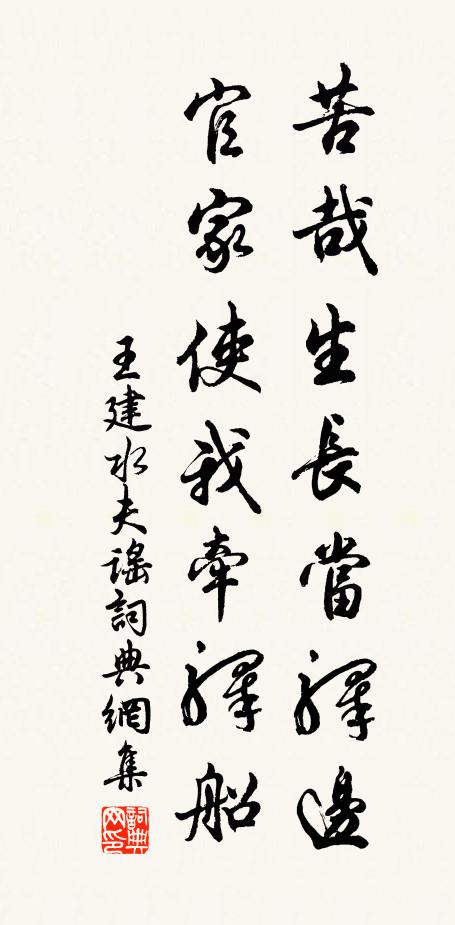 苦哉生長當驛邊
官家使我牽驛船
王建水夫謠詞典網集
詞典网印